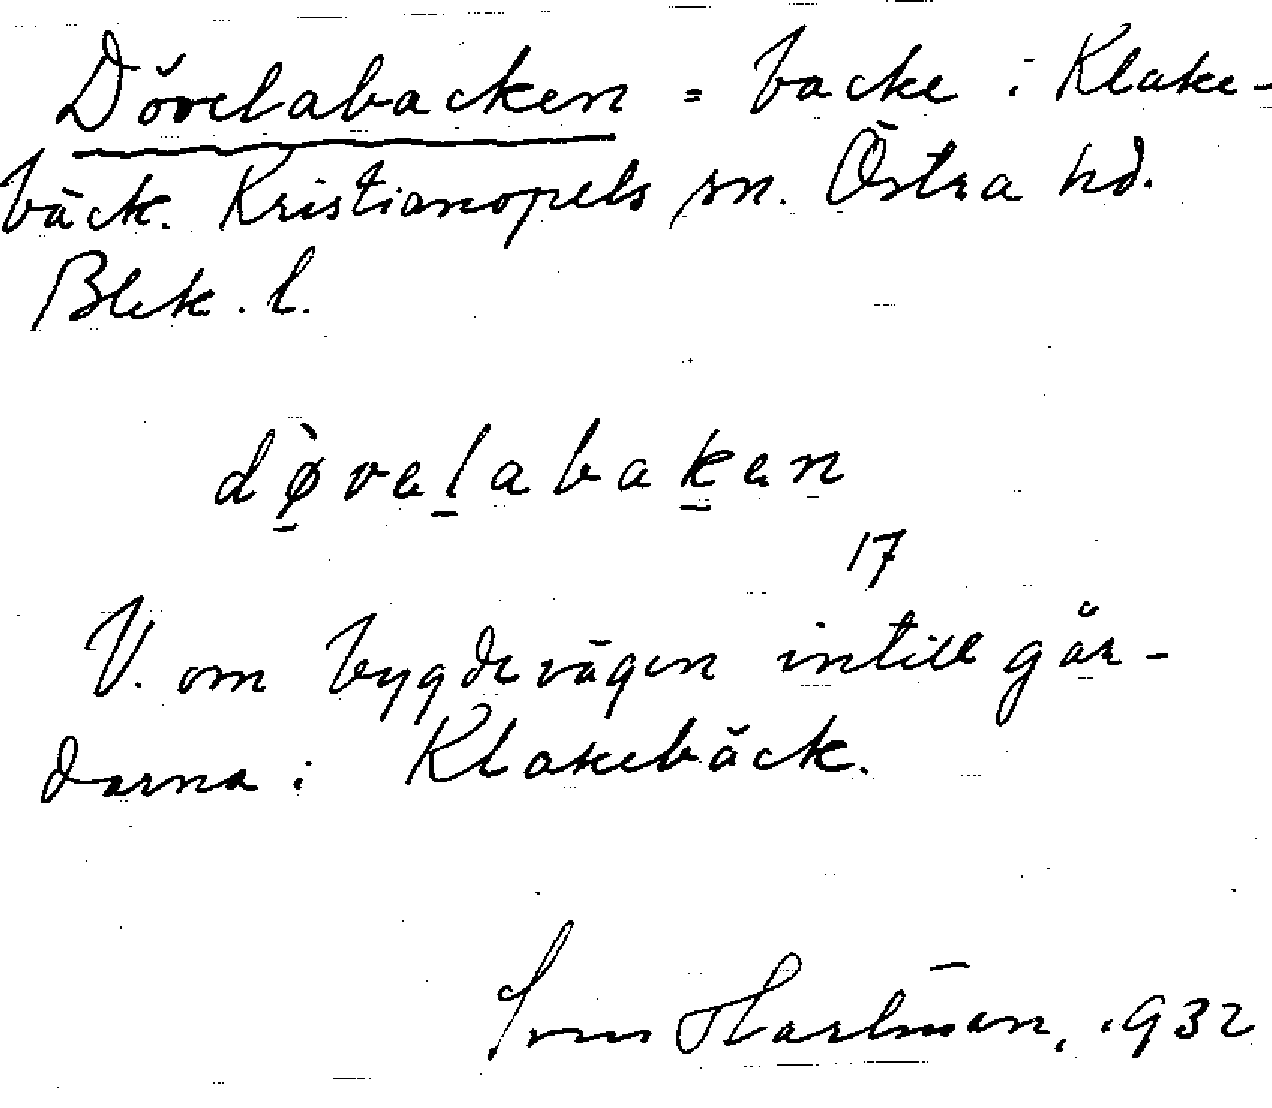 Dövelabacken = backe i Klake-
bäck. Kristianopels sn. Östra hd.
Blek. l.
dø̀velabaken
17
V. om bygdevägen intill går-
darna i Klakebäck.
Sven Hartman, 1932